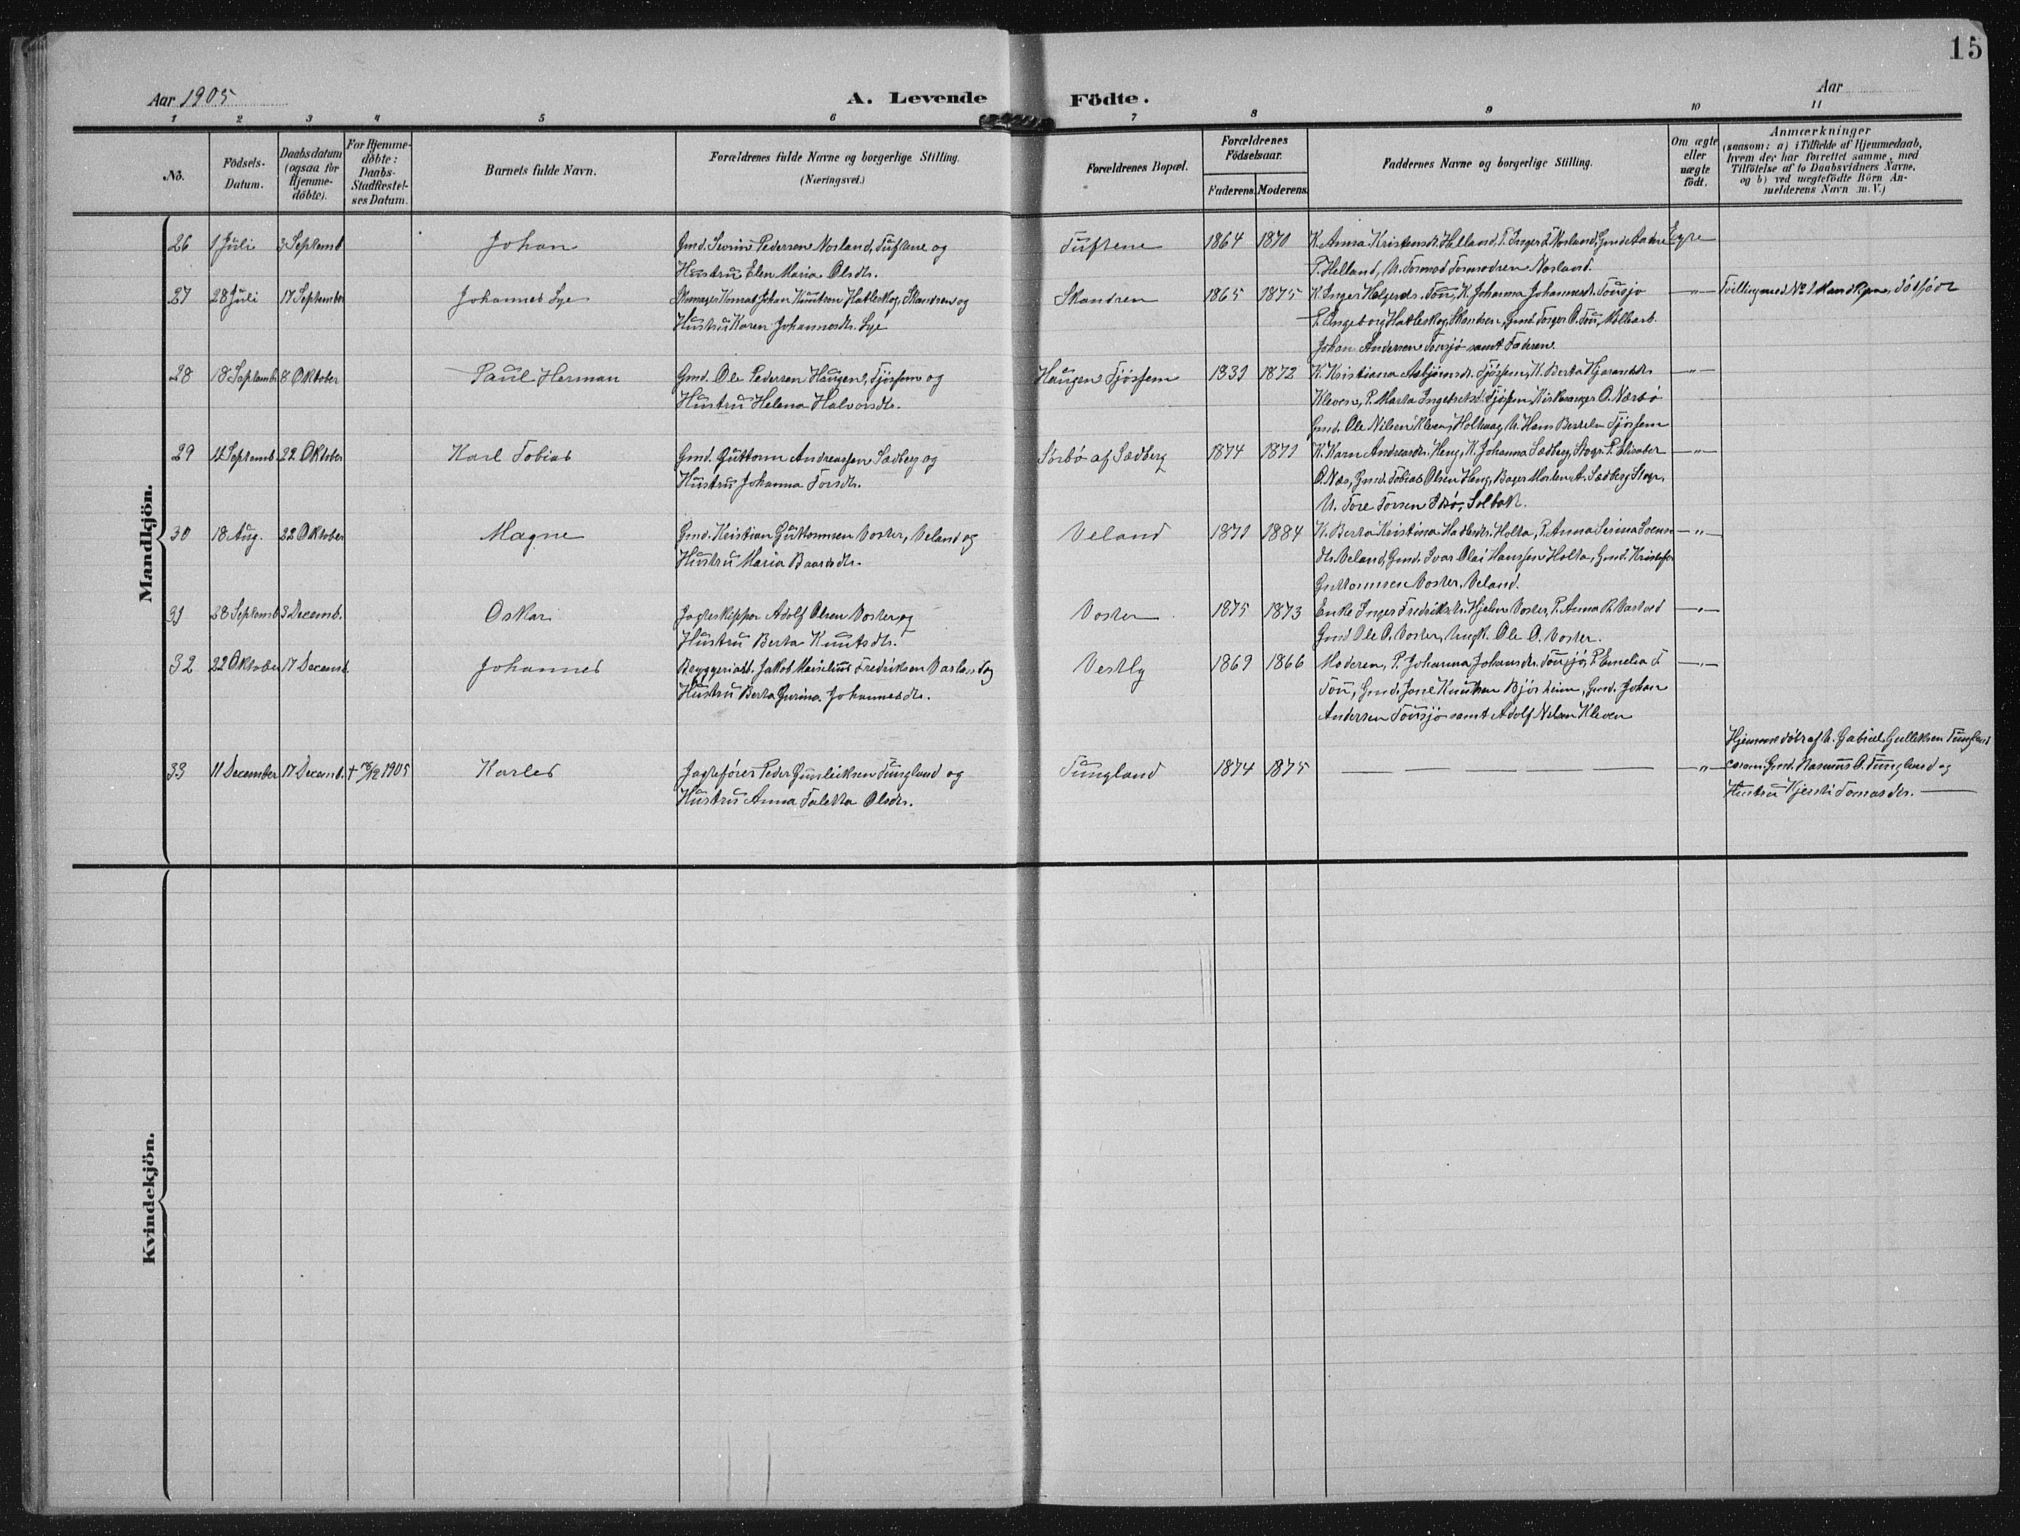 15
Aar 1905
A. Levende Födte.
Aar
1 2 3 4 5 6 7 8 9 10 11
No.
Födsels-Datum.
Daabsdatum (ogsaa for Hjemmedöbte).
For Hjemmedöbte: Daabs-Stadfæstelses Datum.
Barnets fulde Navn.
Forældrenes fulde Navne og borgerlige Stilling.
(Næringsvei.)
Forældrenes Bopæl.
Forældrenes Födselsaar.
Faderens. Moderens.
Faddernes Navne og borgerlige Stilling.
Om ægte eller uægte födt.
Anmærkninger
(saasom: a) i Tilfælde af Hjemmedaab,
hvem der har forrettet samme, med
Tilföielse af to Daabsvidners Navne,
og b) ved uægtefödte Börn An-
melderens Navn m. V.)
Mandkjön.
26 1 Juli 3 Septemb Johan Gmd. Sevrin Pedersen Norland, Tuftene og Tuftene 1864 1870 K. Anna Kristensdr. Helland, P. Inger Norland, Gmd.
Hustru Elen Maria Olsdr. T. Helland, U. Tormod Tormodsen Norland.
27 28 Juli 17 September Johannes Lye Skomager Konrad Johan Knutsen Hatleskog, Skandsen og Skandsen 1865 1875 K. Inger Helgesdr. Tou, K. Johanna Johannesdr. Tousjø —"— Tvilling med No 1 Mandkjøn, Dødfødt
Hustru Karen Johannesdr. Lye P. Ingeborg Hatleskog, Skandsen, Gmd. Torger O. Tou, Møllearb.
Johan Andersen Tousjø samt Faderen.
28 18 Septemb 8 Oktober Paul Herman Gmd. Ole Pedersen Haugen, Fjøsfem og Haugen 1839 1872 K. Kristiana Asbjørnsdr. K. Berta —"—
Hustru Helena Halvorsdr. Kleven, P. Marta Ingebretsd. Kirkesanger O. Nærbø
Gmd. Ole Nilsen Kleven, Holtvag, U. Hans
29 12 Septemb. 22 Oktober Karl Tobias Gmd. Guttorm Andreassen Sædberg og Sørbø af Sædberg 1874 1871 K. Karn Andreasdr. Heng, K. Johanna Sædberg, P. Elisabet —"—
Hustru Johanna Torsdr. O. Næs, Gmd. Tobias Olsen Heng, Bager Morten A. Sædberg
U. Tore Torsen Solbak
30 18 Aug. 22 Oktober Magne Gmd. Kristian Guttormsen Voster, Veland og Veland 1871 1884 K. Berta Kristina Holta, P. Anna Serina —"—
Hustru Maria Baardsdr. Veland, Gmd. Ivar Olai Hanssen Holta, Gmd. Kristofer
Guttormsen Voster, Veland.
31 28 Septemb 3 Decemb. Oskar Jagteskipper Adolf Olsen Voster og Voster 1875 1873 Enke Inger Fredriksdr. Hjelm Voster, P. Anna —"—
Hustru Berta Knutsdr. Gmd. Ole O. Voster, Ungk. Ole O. Voster.
32 22 Oktober 17 Decemb. Johannes Bryggeriarb. Jakob Fredriksen og Vestly 1869 1866 Moderen, P. Johanna Johansdr. Tousjø, P. Emelia T. —"—
Hustru Berta Gurina Johannesdr. Tou, Gmd. Jone Knutsen Bjørheim, Gmd. Johan
Andersen Tousjø samt Adolf Nilsen Kleven
Hjemmedøbt af U. Gabriel Gulleksen Tungland
33 11 December 17 Decemb. 1905 Karles Jagtefører Peder Gunleiksen Tungland og Tungland 1874 1875 — — — — " — coram Gmd. Rasmus O. Tungland og
Hustru Anna Taletta Olsdr. Hustru Kjersti Tomasdr. —
Kvindekjön.